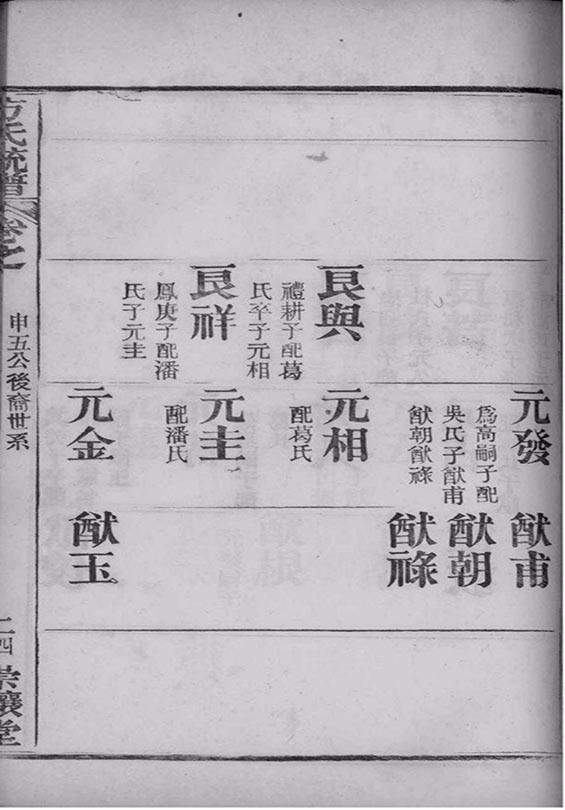 良與
禮耕子配葛
氏卒子元相
良祥
鳳庚子配潘
氏子元圭
元發
爲高嗣子配
吳氏子猷甫
猷朝猷祿
元相
配葛氏
元圭
配潘氏
元金
猷甫
猷朝
猷祿
猷玉
方氏統譜
卷之
申五公後裔世系
二四
崇讓堂